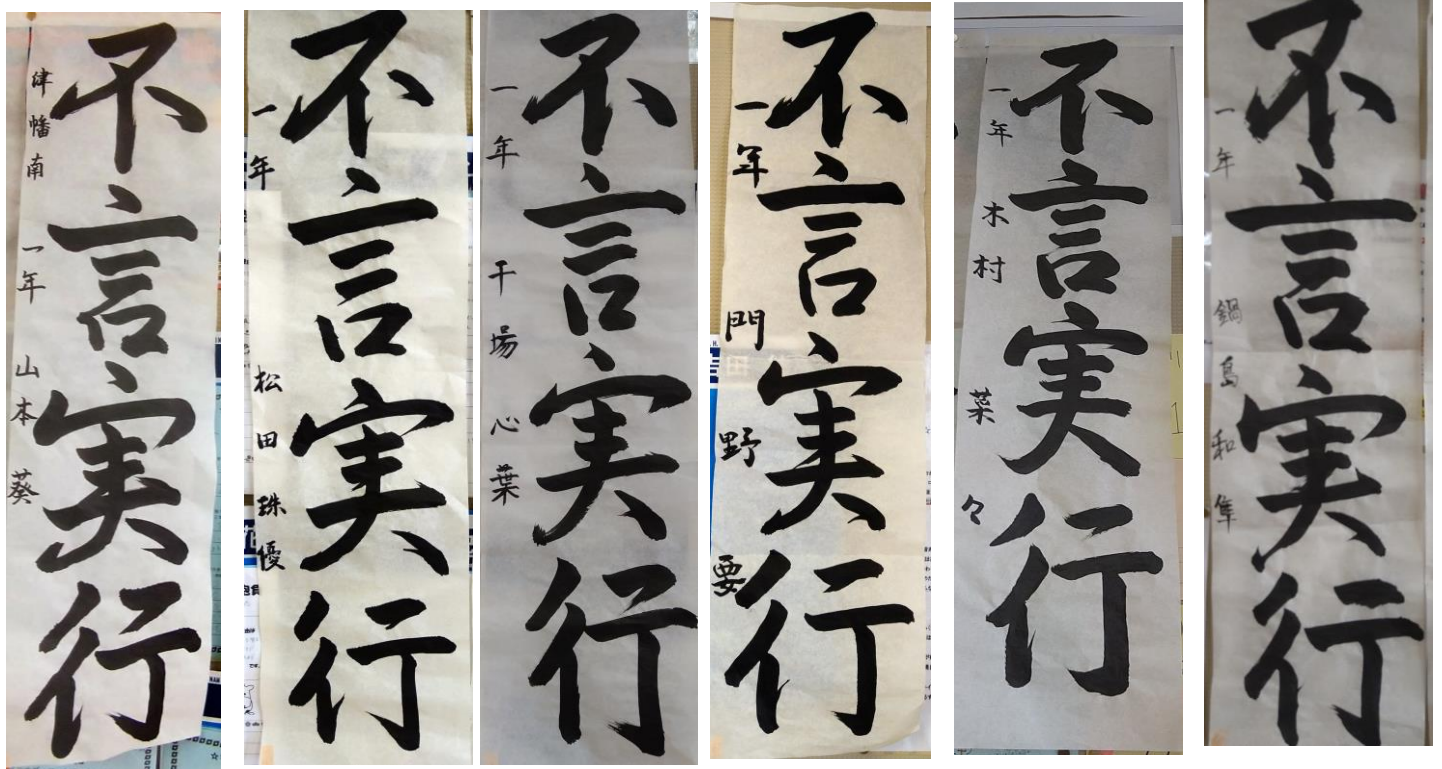 不言実行
津幡南 一年 山本 葵
不言実行
一年 松田 珠優
不言実行
一年 干場 心葉
不言実行
一年 門野 要
不言実行
一年 木村 菜々
不言実行
一年 鍋島 和隼